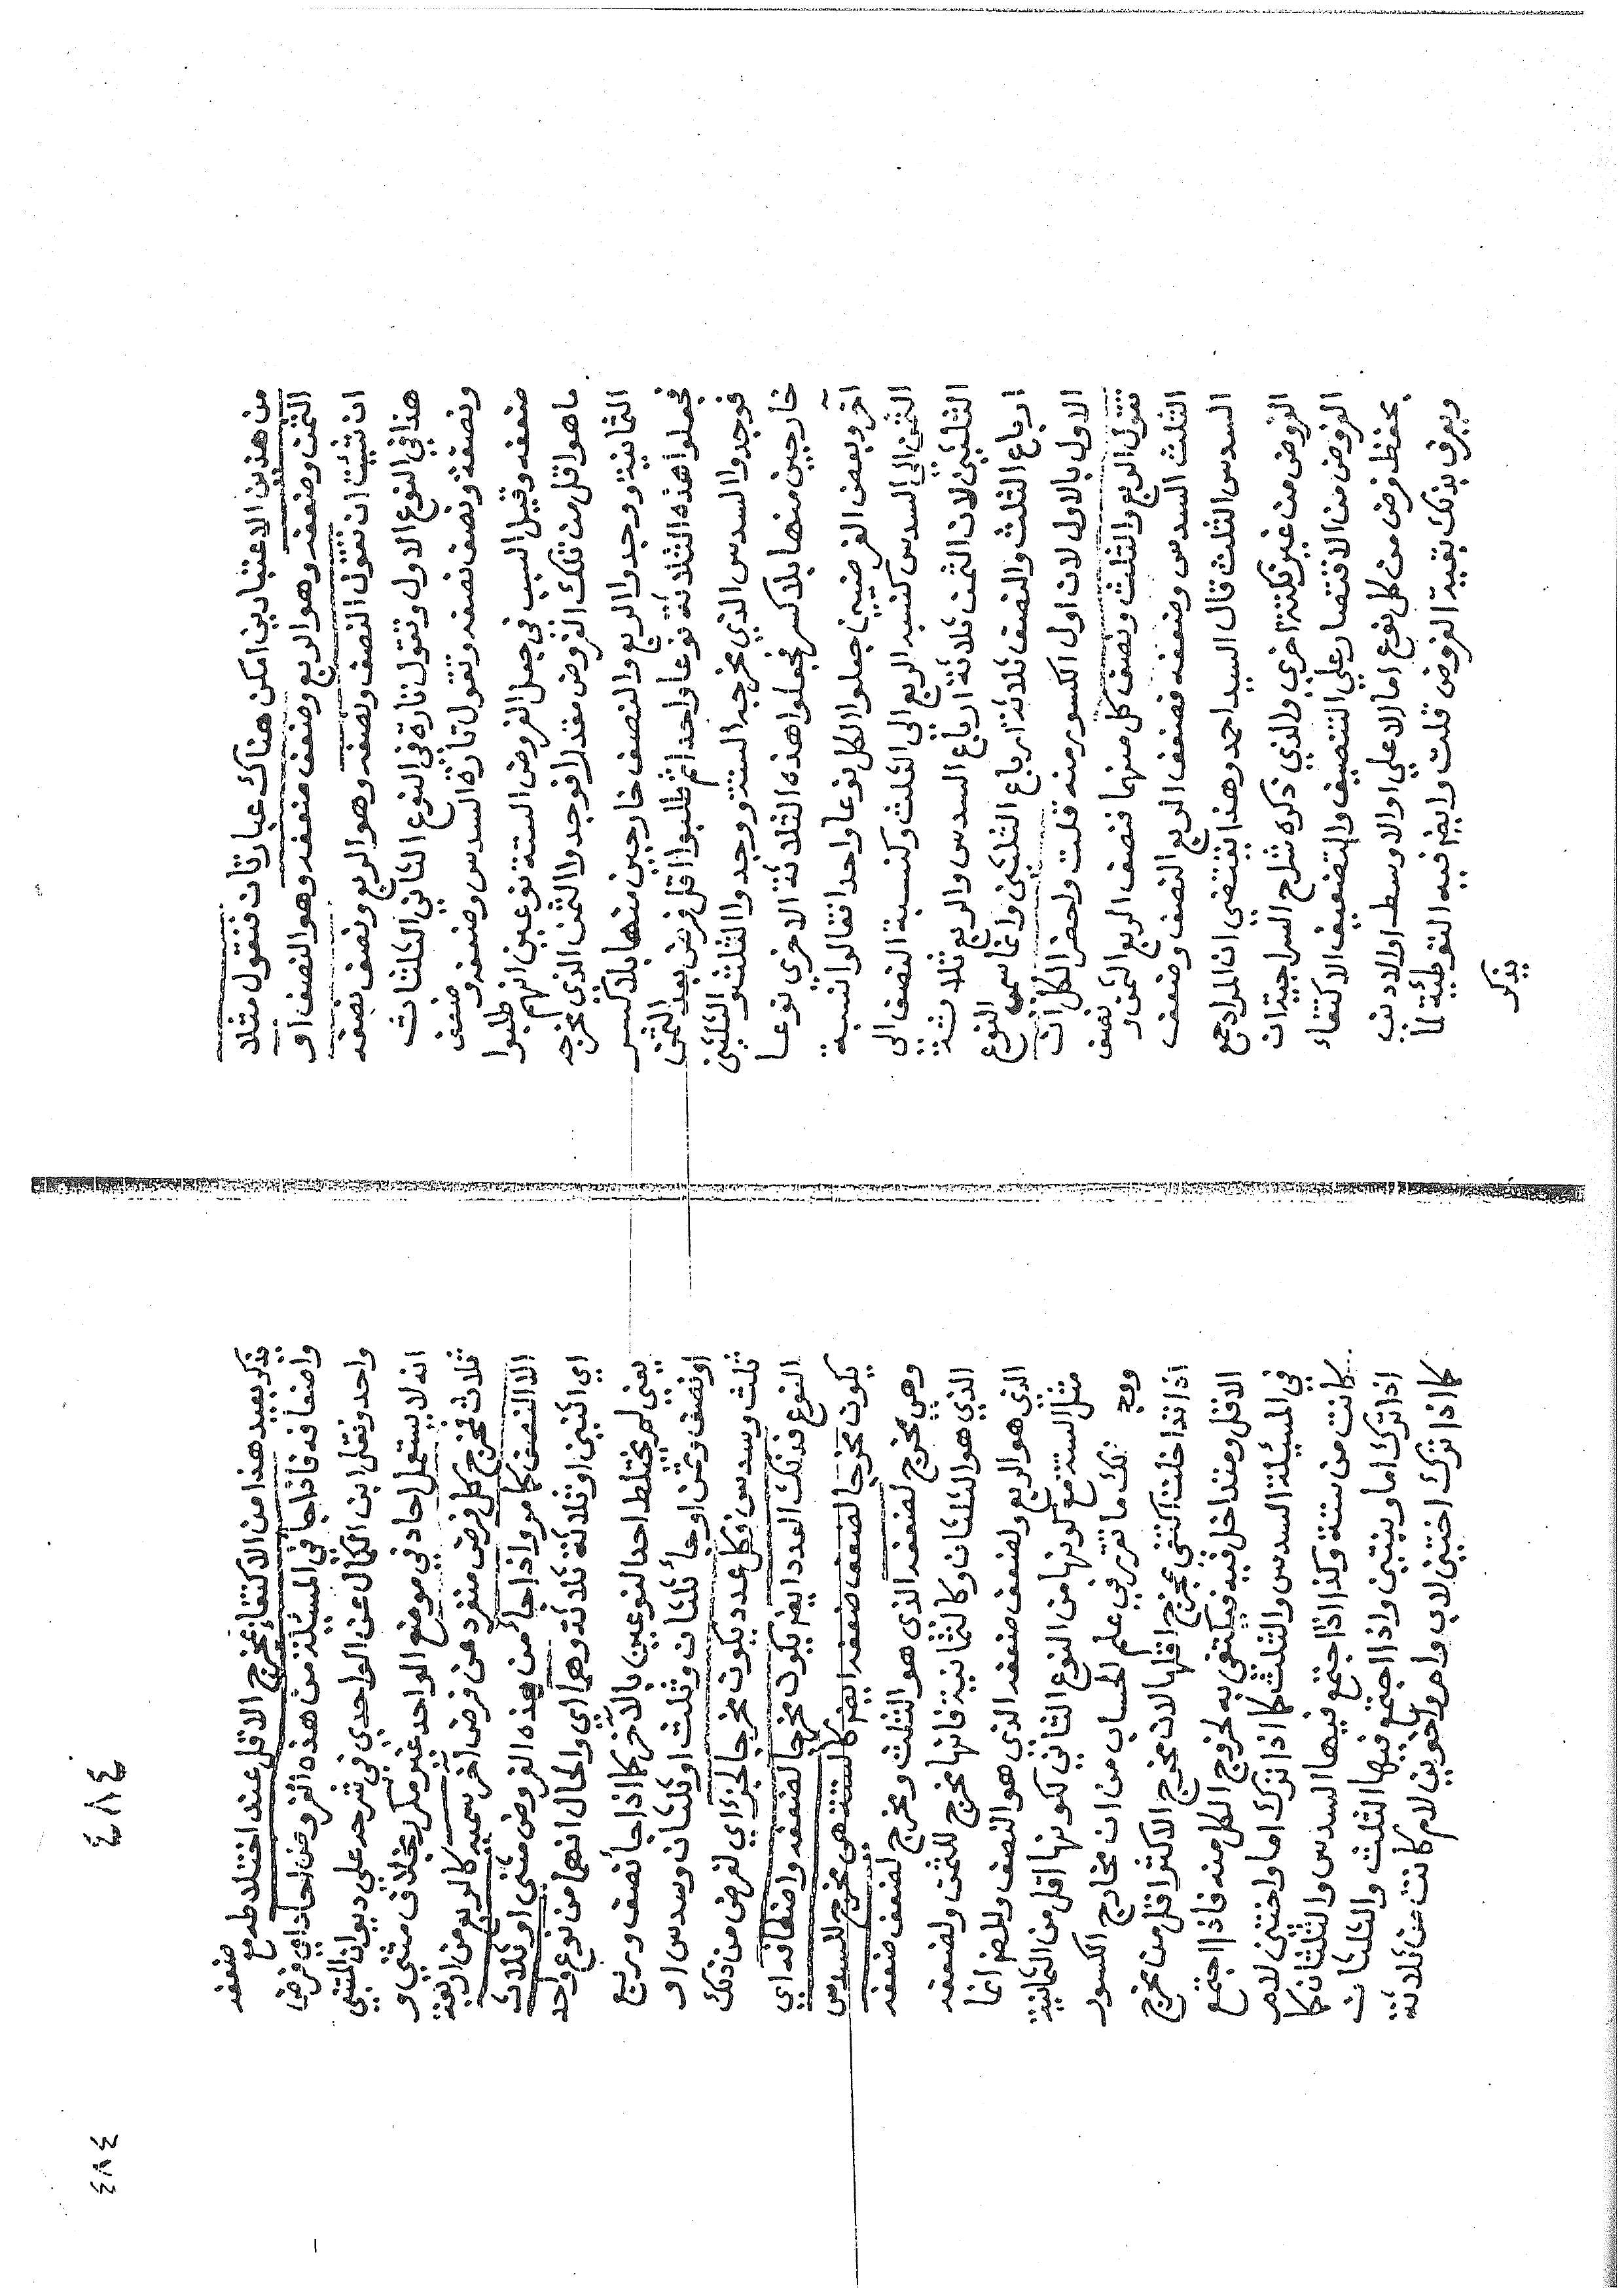 من هذين الاعتبارين امكن هناك عبارتان فنقول مثلا
الثمن وضعفه وهو الربع وضعف ضعفه وهو النصف او
ان شئت ان تقول النصف ونصفه وهو الربع ونصف نصفه
هذا في النوع الاول وتقول تارة في النوع الثاني الثلثان
ونصفه ونصف نصفه وتقول تارة السدس وضعفه وضعف
ضعفه وقيل السبب في جعل الفروض الستة نوعين انهم طلبوا
ما هو اقل من تلك الفروض مقدارا فوجدوا الثمن الذي مخرجه
الثمانية ووجدوا الربع والنصف خارجين منها بلا كسر
فجعلوا هذه الثلاثة نوعا واحدا ثم طلبوا اقل فرض بعد الثمن
فوجدوا السدس الذي مخرجه الستة ووجدوا الثلث والثلثين
خارجين منها بلا كسر فجعلوا هذه الثلاثة الاخرى نوعا
آخر وبعض الفرضيين جعلوا الكل نوعا واحدا فقالوا نسبة
الثمن الى السدس كنسبة الربع الى الثلث وكنسبة النصف الى
الثلثين لان الثمن ثلاثة ارباع السدس والربع ثلاثة
ارباع الثلث والنصف ثلاثة ارباع الثلثين وانما سمى النوع
الاول بالاول لان اول الكسور منه قلت واخصر الكل ان
تقول الربع والثلث ونصف كل منهما فنصف الربع الثمن ونصف
الثلث السدس وضعفه فضعف الربع النصف وضعف
السدس الثلث قال السيد احمد وهذا يقتضي ان المراد جمع
الفروض من غير نكتة اخرى والذي ذكره شراح السراجية ان
الفروض من الاقتصار على التنصيف والتضعيف الاكتفاء
بحفظ فرض من كل نوع اما الاعلى او الاوسط او الادنى
ويعرف بذلك بقية الفروض قلت وايضا فيه التوطئة لما
يذكر
٤٨٤
٤٨٤
يذكر بعيد هذا من الاكتفا بمخرج الاقل عند اختلاطه مع ضعفه
واضعافه فاذا جا في المسئلة من هذه الفروض احاد اي فرض
واحد ونقل ابن الكمال عن الواحدي في شرحه على ديوان المتنبي
انه لا يستعمل احاد في موضع الواحد غير مكرر بخلاف مثنى و
ثلاث فمخرج كل فرض منفرد عن فرض آخر سميه كالربع من اربعة
الا النصف كما مر واذا جا من هذه الفروض مثنى او ثلاث
اي اثنين او ثلاثة ثلاثة وهما اي والحال انهما من نوع واحد
يعني لم يختلط احد النوعين بالآخر كما اذا جا نصف وربع
او نصف وثمن او جا ثلثان وثلث او ثلثان وسدس او
ثلث وسدس فكل عدد يكون مخرجا لجزء اي لفرض من ذلك
النوع فذلك العدد ايضا يكون مخرجا لضعفه واضعافه اي
يكون مخرجا لضعف ضعفه ايضا كالستة هي مخرج للسدس
وهي مخرج لضعفه الذي هو الثلث ومخرج لضعف ضعفه
الذي هو الثلثان وكالثمانية فانها مخرج للثمن ولضعفه
الذي هو الربع ولضعف ضعفه الذي هو النصف
مثل الستة مع كونها من النوع الثاني لكونها اقل من الثمانية
ذلك ما تقرر في علم الحساب من ان مخارج الكسور
اذا تداخلت اكتفي بمخرج اقلها لان مخرج الاكثر اقل من مخرج
الاقل ومتداخل فيه فيكتفى به لخروج الكل منه فاذا اجتمع
في المسئلة السدس والثلث كما اذا ترك اما واختين لام
كانت من ستة وكذا اذا اجتمع فيها السدس والثلثان كما
اذا ترك اما وبنتين واذا اجتمع فيها الثلث والثلثان
كما اذا ترك اختين لاب وام واخوين لام كانت من ثلاثة